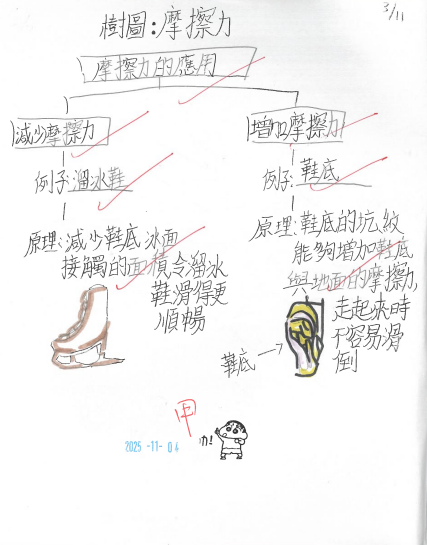 3/11
樹圖:摩擦力
摩擦力的應用
減少摩擦力
增加摩擦力
例子:溜冰鞋
例子:鞋底
原理:減少鞋底冰面
接觸的面積令溜冰
鞋滑得更
順暢
原理:鞋底的坑紋
能夠增加鞋底
與地面的摩擦力,
走起來時
不容易滑
倒
鞋底
甲
2025-11-04